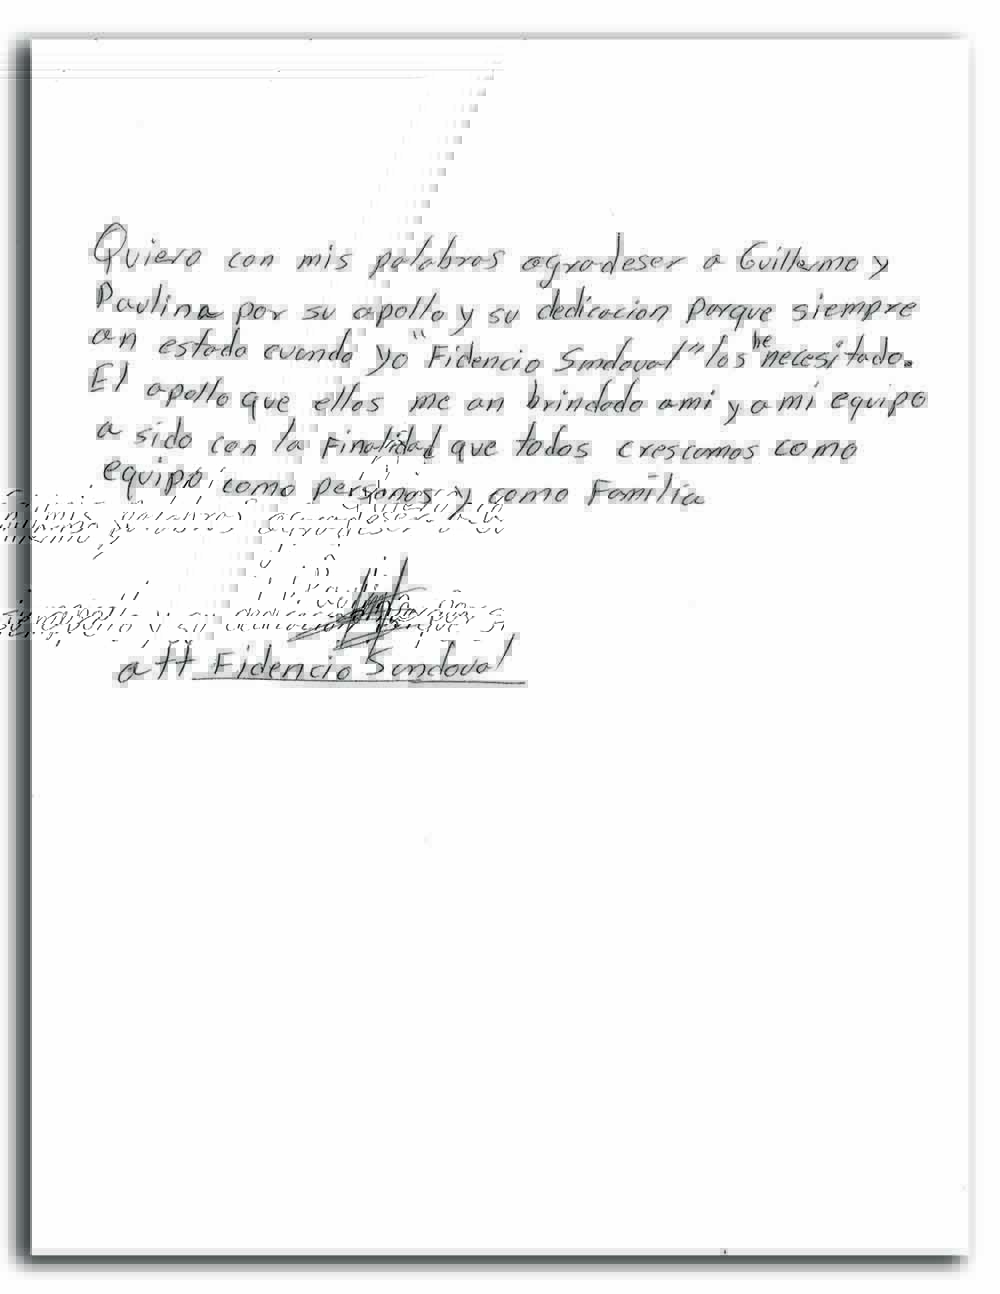 Quiero con mis palabras agradeser a Guillermo y
Paulina por su apollo y su dedicacion porque siempre
an estado cuando yo "Fidencio Sandoval" los he necesitado.
El apollo que ellos me an brindado ami y a mi equipo
a sido con la Finalidad que todos crescamos como
equipo como personas y como Familia
mis palabras agradeser a
y su dedicacion
att Fidencio Sandoval